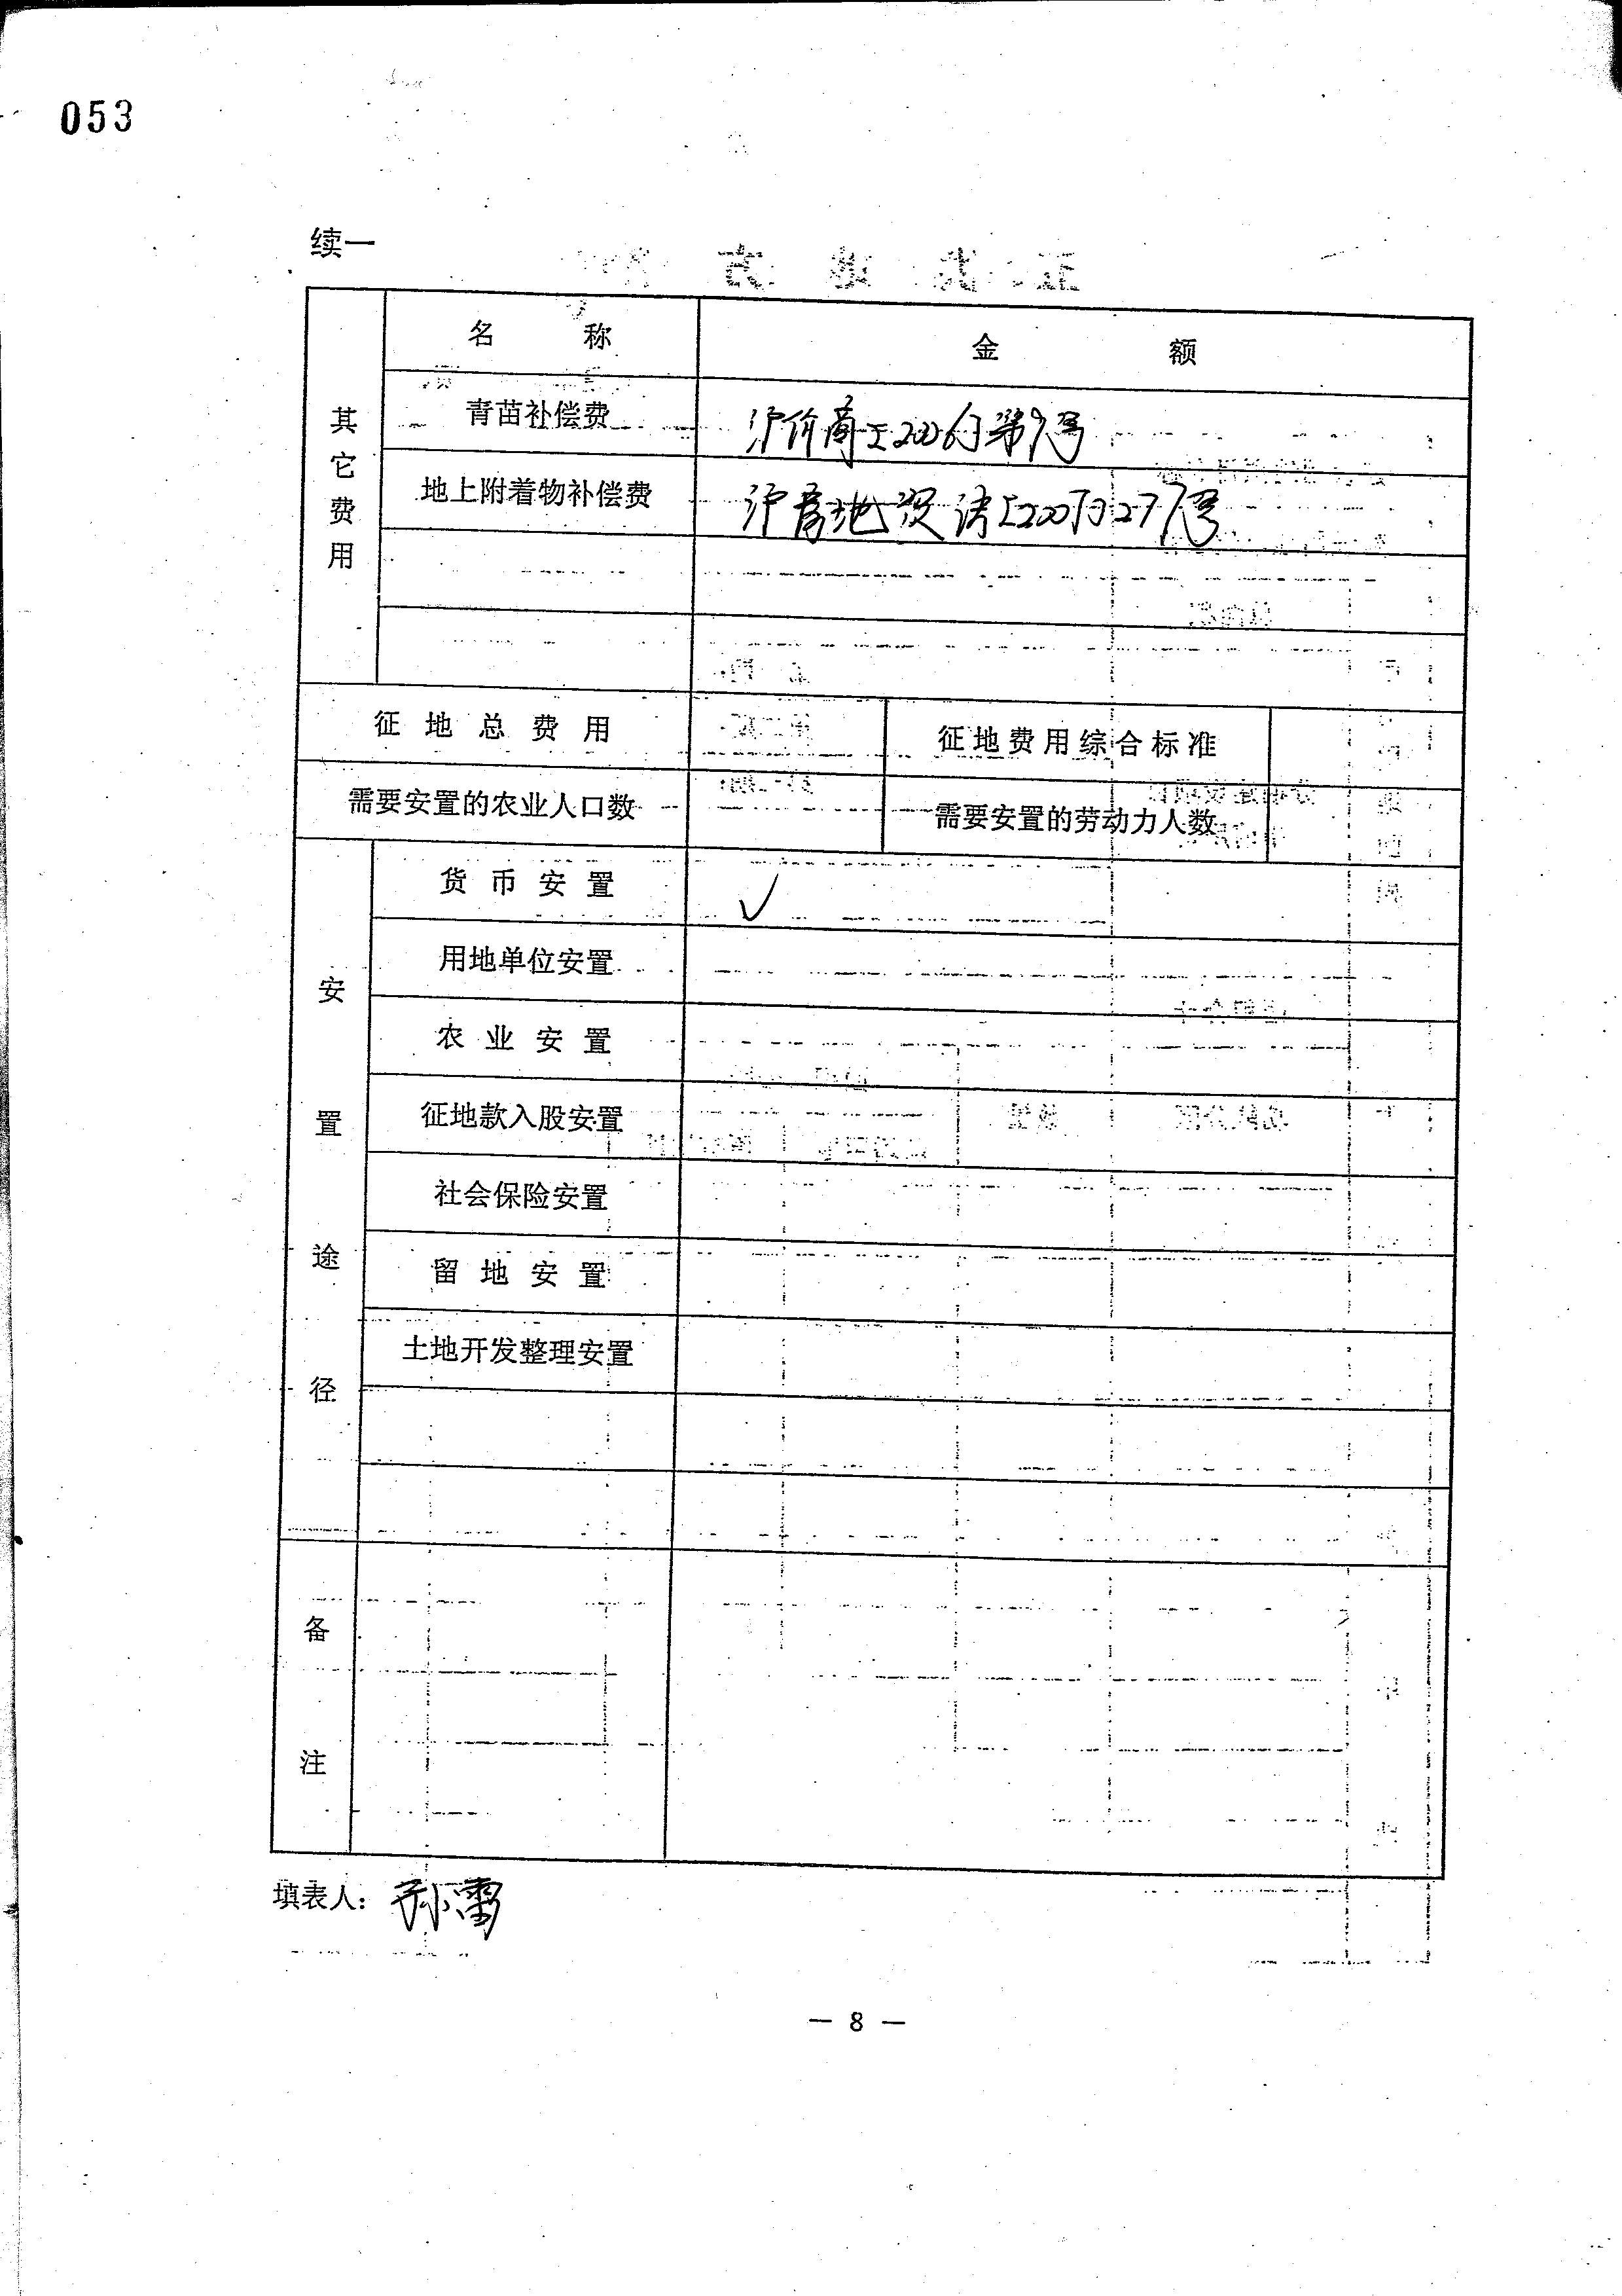 053
续一
名 称 金 额
其它费用
青苗补偿费 沪价商[2006]第9号
地上附着物补偿费 沪房地资法[2007]277号
征地总费用 征地费用综合标准
需要安置的农业人口数 需要安置的劳动力人数
安置途径
货币安置 √
用地单位安置
农业安置
征地款入股安置
社会保险安置
留地安置
土地开发整理安置
备注
填表人：孙雷
— 8 —